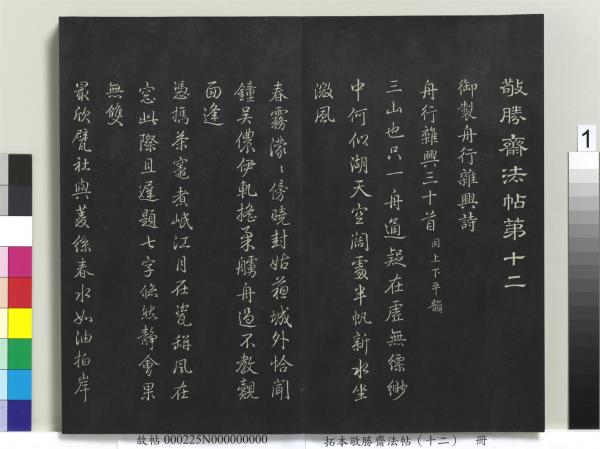 敬勝齋法帖第十二
御製舟行雜興詩
舟行雜興三十首 用上下平韻
三山也只一舟通疑在虛無縹緲
中何似湖天空闊處半帆新水坐
微風
春霧濛〻傍曉封姑蘇城外恰聞
鐘吳儂伊軋搖柔艣舟過不教覿
面逢
憑攜茶竈煮岷江月在瓷缾風在
窓此際且遲題七字悠然靜會果
無雙
最欣甓社與菱絲春水如油拍岸
1
故帖 000225N000000000
拓本敬勝齋法帖(十二) 冊